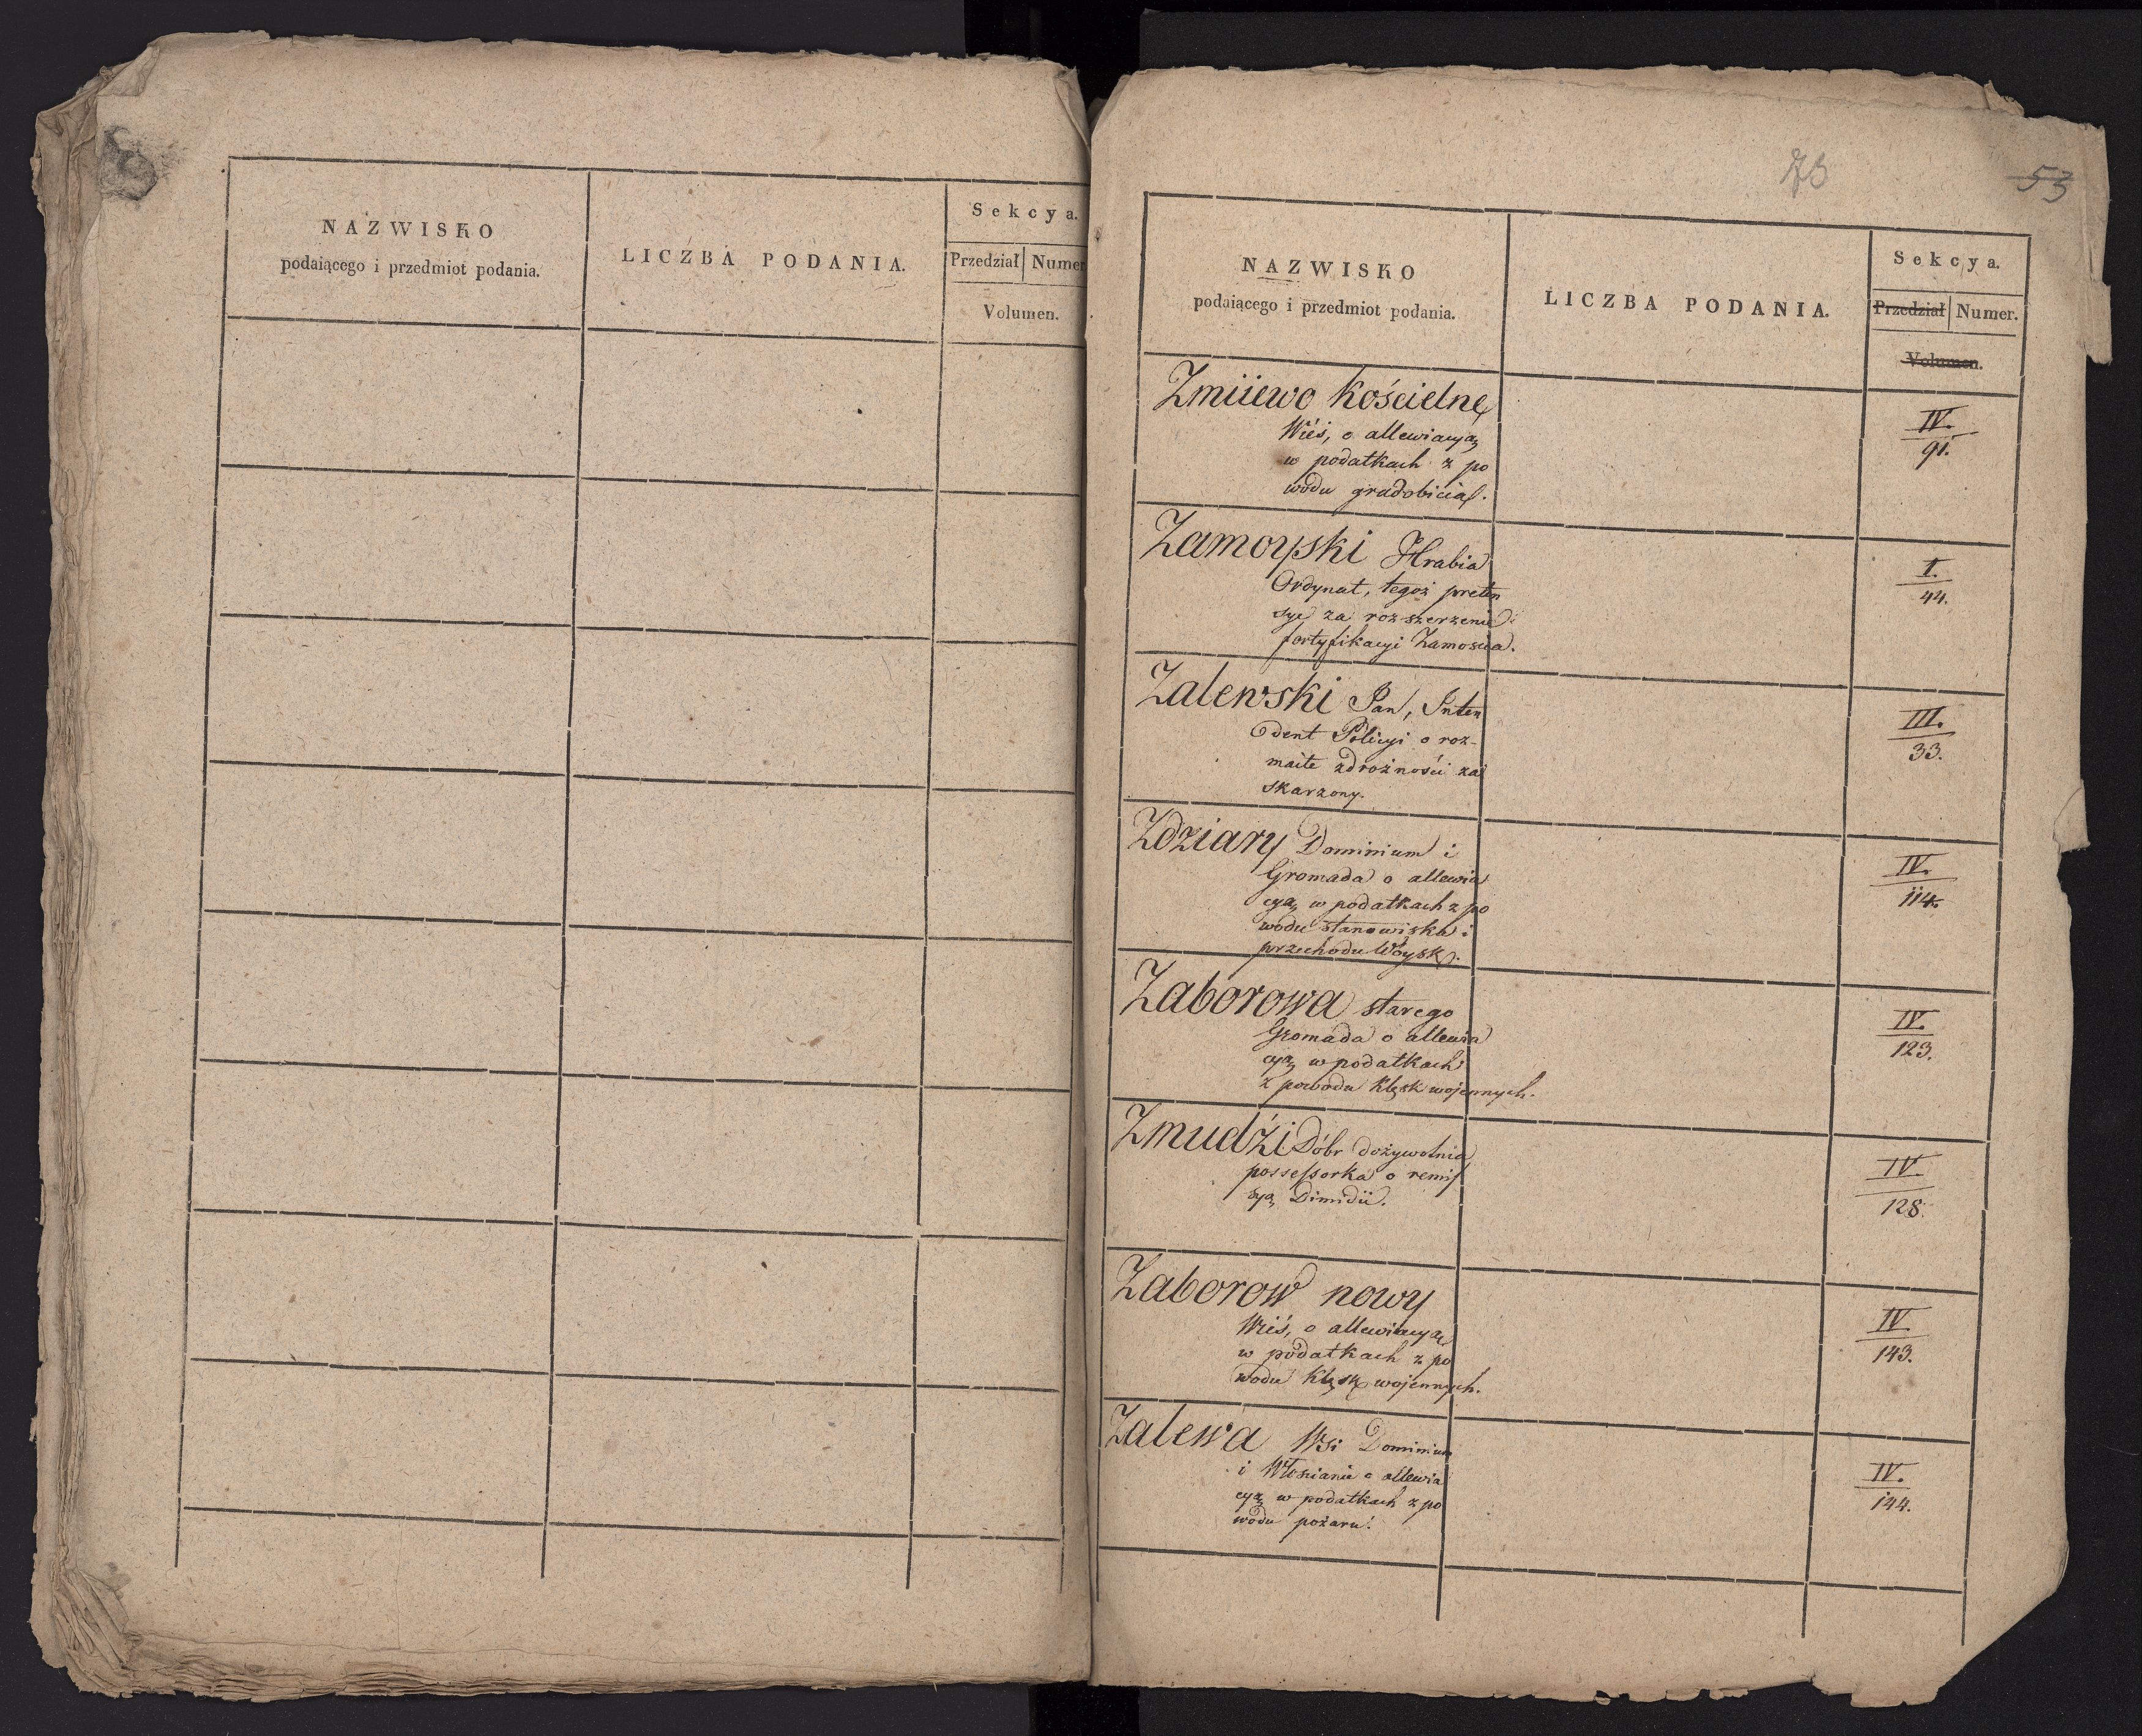 NAZWISKO
podaiącego i przedmiot podania.
LICZBA PODANIA.
Sekcya.
Przedział Numer
Volumen.
73
53
NAZWISKO
podaiącego i przedmiot podania.
LICZBA PODANIA.
Sekcya.
Przedział Numer.
Volumen.
Zmiiewo Kościelne
Wieś, o allewiacyą
w podatkach z po
wodu gradobicia.
IV.
91.
Zamoyski Hrabia
Ordynat, tegoż preten
sye za rozszerzenie
fortyfikacyi Zamoscia.
I.
44.
Zalewski Pan, Inten
dent Policyi o roz-
maite zdrożności za
skarzony.
III.
33.
Zdziary Dominium i
Gromada o allewia
cyą w podatkach z po
wodu stanowiska i
przechodu Woysk.
IV.
114.
Zaborowa starego
Gromada o allewia
cyą w podatkach
z powodu klęsk wojennych.
IV.
123.
Zmudźi Dóbr dożywotnia
possessorka o remis
syą Dimidii.
IV.
128.
Zaborow nowy
Wieś, o allewiacyą
w podatkach z po
wodu klęsk wojennych.
IV
143.
Zalewa Wsi Dominium
i Włoscianie o allewia
cyą w podatkach z po
wodu pożaru.
IV.
144.